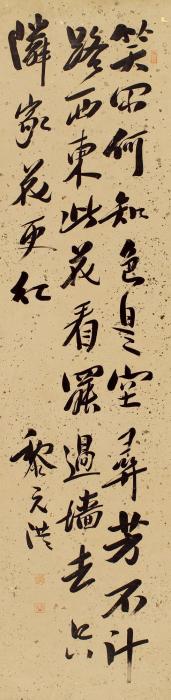 笑問何知色是空尋芳不計
路西東此花看罷過墙去只
隣家花更紅
黎元洪